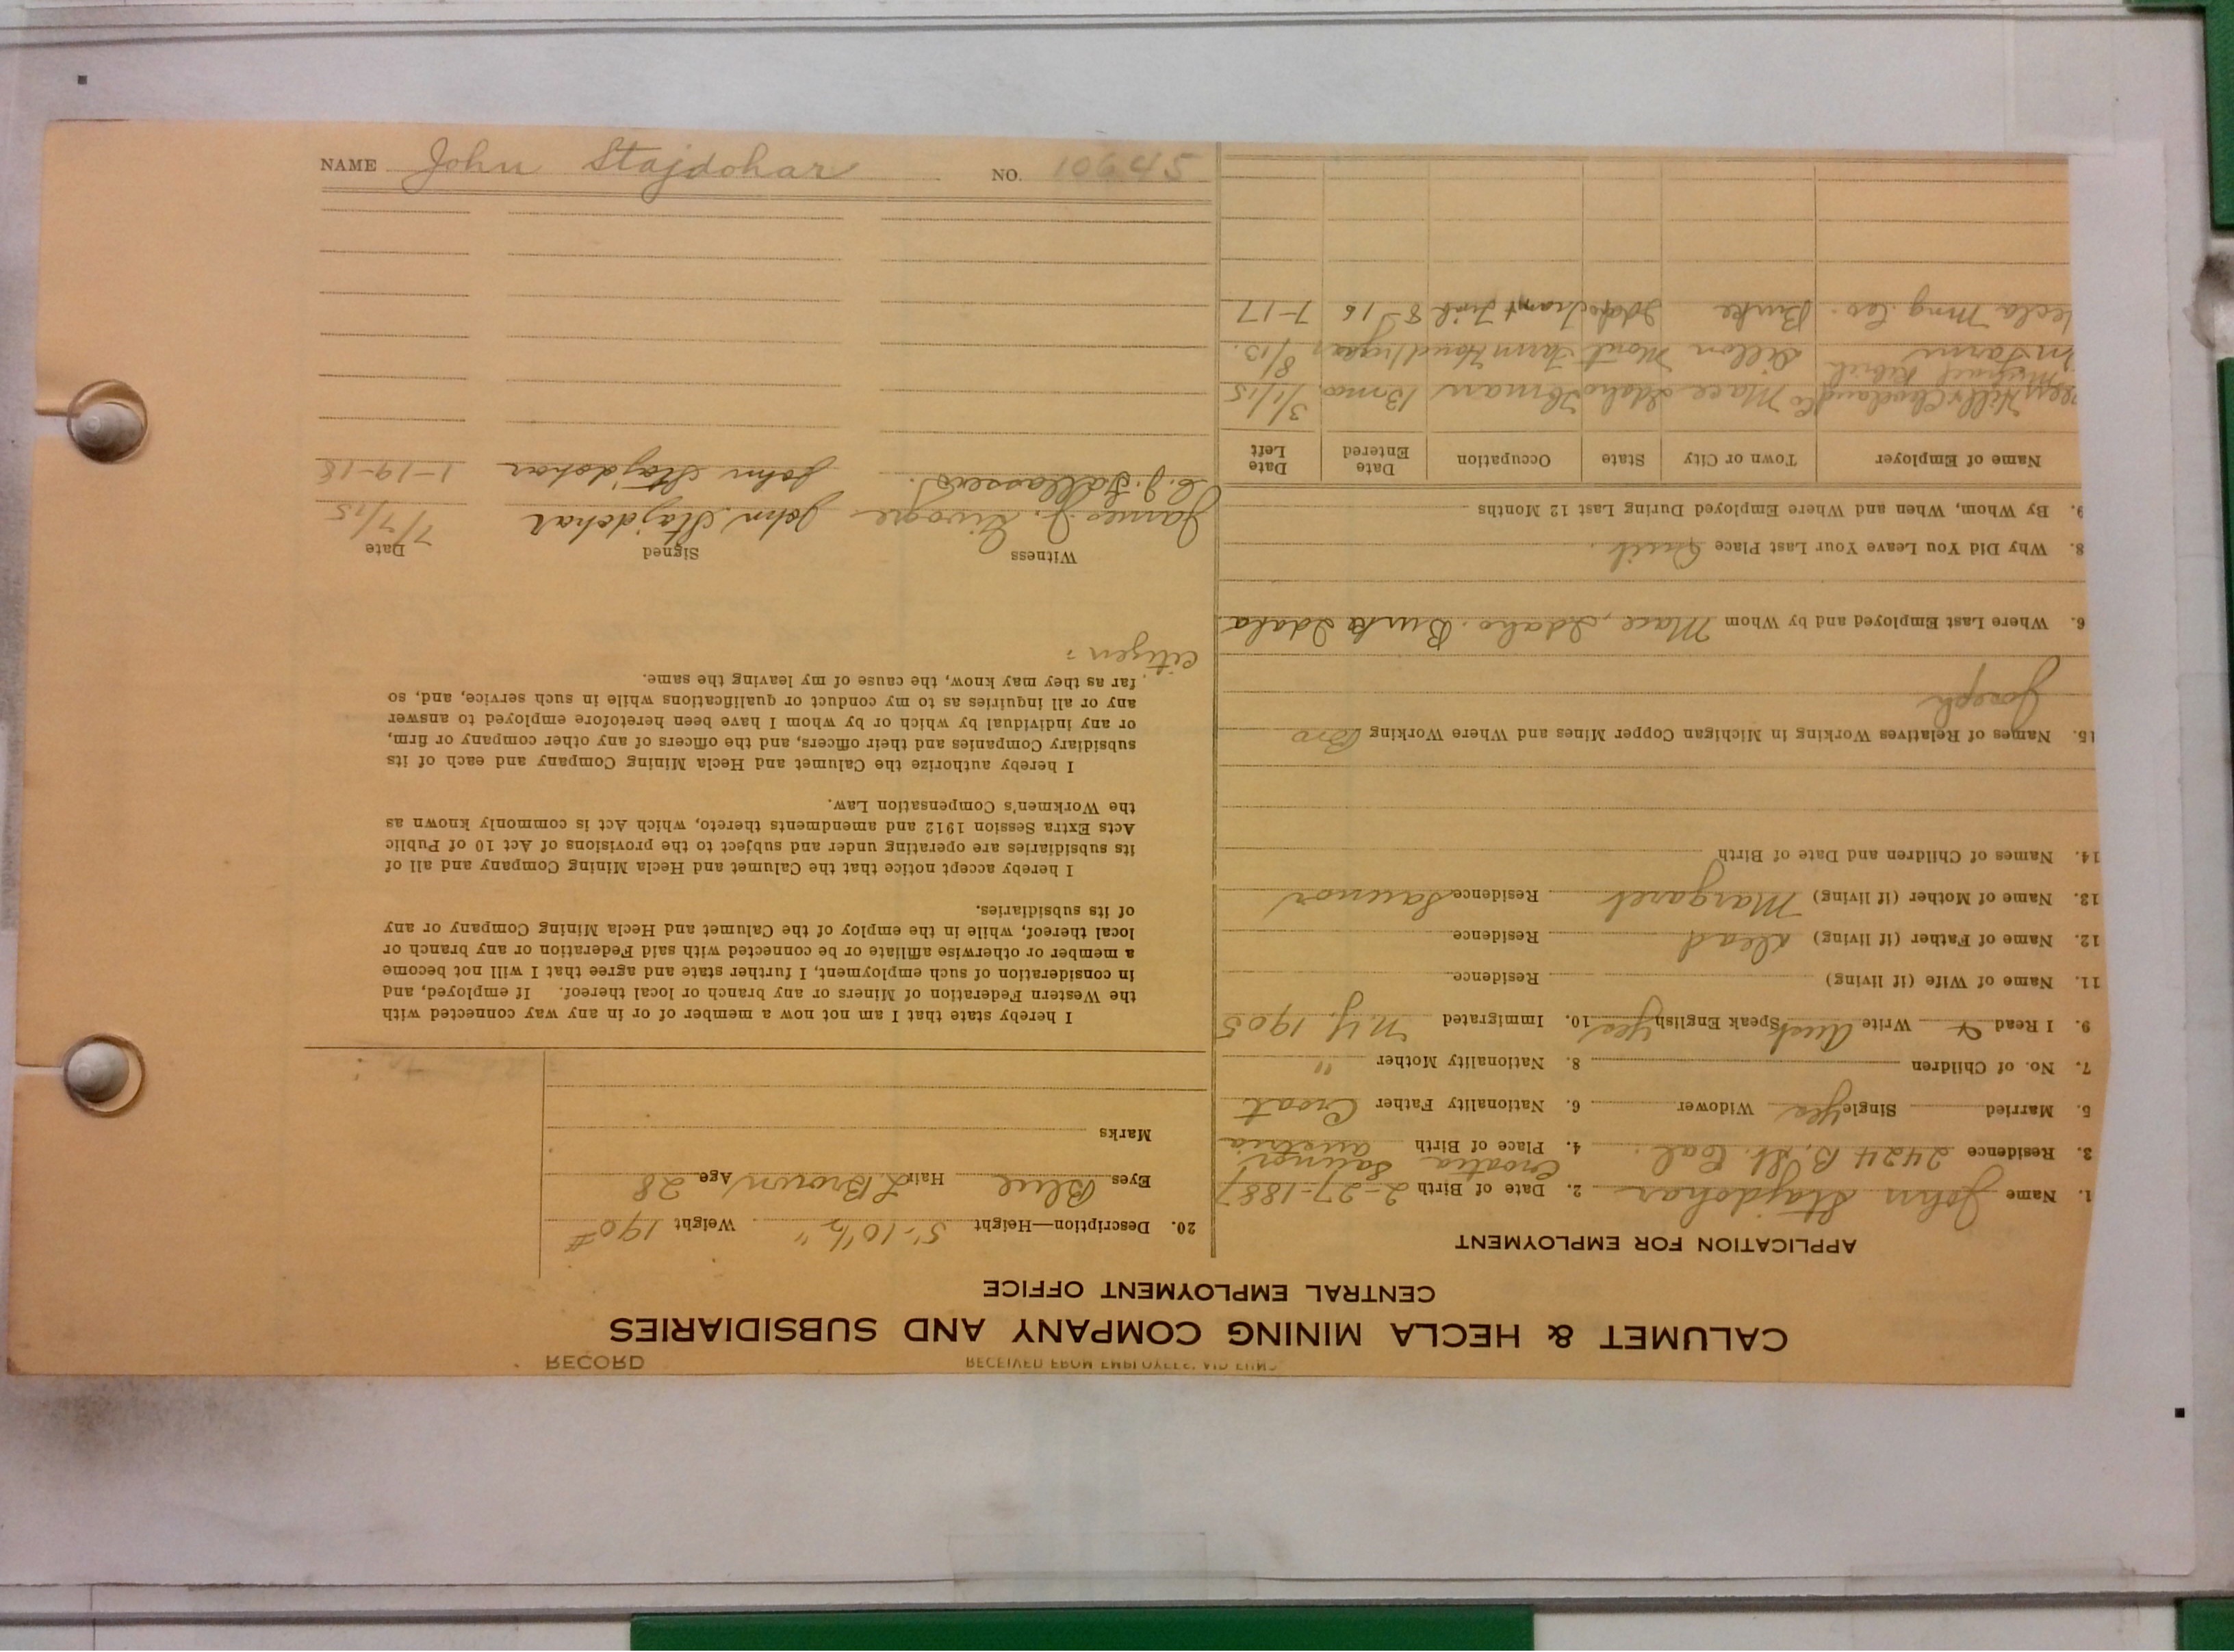 NAME John Stajdohar NO. 10645
RECORD
RECEIVED FROM EMPLOYEES' AID FUND
CALUMET & HECLA MINING COMPANY AND SUBSIDIARIES
CENTRAL EMPLOYMENT OFFICE
APPLICATION FOR EMPLOYMENT
1. Name John Stajdohar 2. Date of Birth 2-27-1887
Croatia
3. Residence 2424 B. St. Cal. 4. Place of Birth Austria
5. Married Single Yes Widower 6. Nationality Father Croat
7. No. of Children 8. Nationality Mother "
9. I Read & Write Aust Speak English Yes 10. Immigrated N.Y. 1905
11. Name of Wife (if living) Residence
12. Name of Father (if living) Dead Residence
13. Name of Mother (if living) Margaret Residence
14. Names of Children and Date of Birth
15. Names of Relatives Working in Michigan Copper Mines and Where Working Bro
Joseph
6. Where Last Employed and by Whom Mace, Idaho. Burke Idaho
8. Why Did You Leave Your Last Place Quit.
9. By Whom, When and Where Employed During Last 12 Months
Name of Employer Town or City State Occupation Date Entered Date Left
Hill & Cleveland Mace Idaho 13 mo. 3/1/15
Michael
Farm Dillon Mont Farm Hand 8/15.
ecla Mng. Co. Burke Idaho 8-16 7-17
20. Description—Height 5'-10½" Weight 190#
Eyes Blue Hair L Brown Age 28
Marks
I hereby state that I am not now a member of or in any way connected with
the Western Federation of Miners or any branch or local thereof. If employed, and
in consideration of such employment, I further state and agree that I will not become
a member or otherwise affiliate or be connected with said Federation or any branch or
local thereof, while in the employ of the Calumet and Hecla Mining Company or any
of its subsidiaries.
I hereby accept notice that the Calumet and Hecla Mining Company and all of
its subsidiaries are operating under and subject to the provisions of Act 10 of Public
Acts Extra Session 1912 and amendments thereto, which Act is commonly known as
the Workmen's Compensation Law.
I hereby authorize the Calumet and Hecla Mining Company and each of its
subsidiary Companies and their officers, and the officers of any other company or firm,
or any individual by which or by whom I have been heretofore employed to answer
any or all inquiries as to my conduct or qualifications while in such service, and, so
far as they may know, the cause of my leaving the same.
Citizen =
Witness Signed Date
James J. John Stajdohar 7/7/15
C. J. John Stajdohar 1-19-18